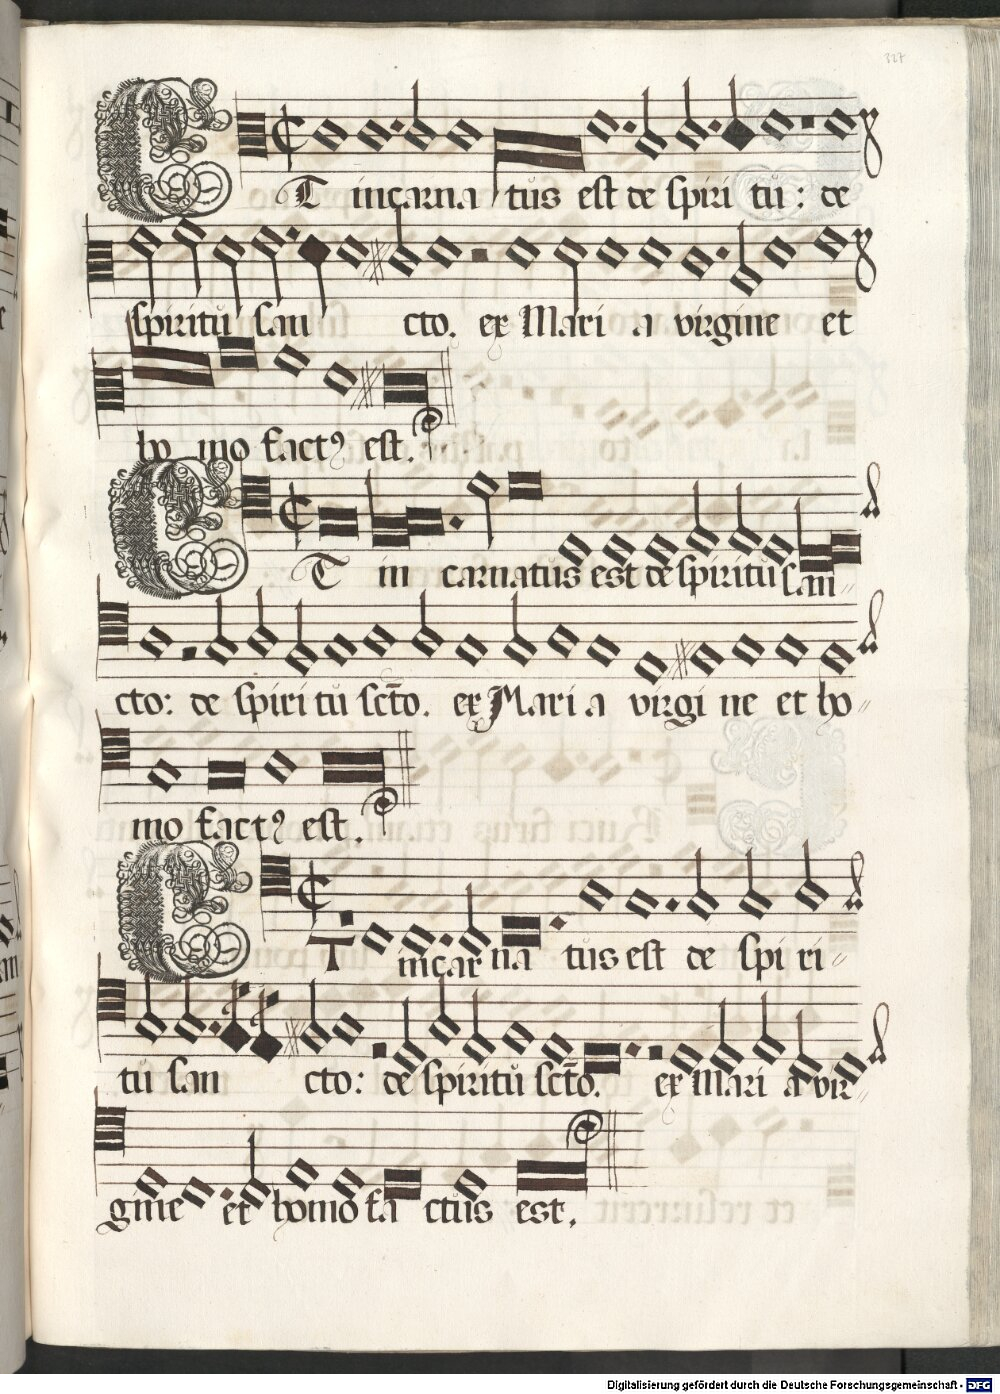 327
ET incarna tus est de spiri tu : de
spiritu san cto. ex Mari a virgine et
ho mo factꝰ est.
ET in carnatus est de spiritu san
cto: de spiri tu scto. ex Mari a virgi ne et ho
mo factꝰ est.
ET incar na tus est de spi ri
tu san cto: de spiritu scto. ex Mari a vir
gine et homo fa ctus est.
Digitalisierung gefördert durch die Deutsche Forschungsgemeinschaft - DFG